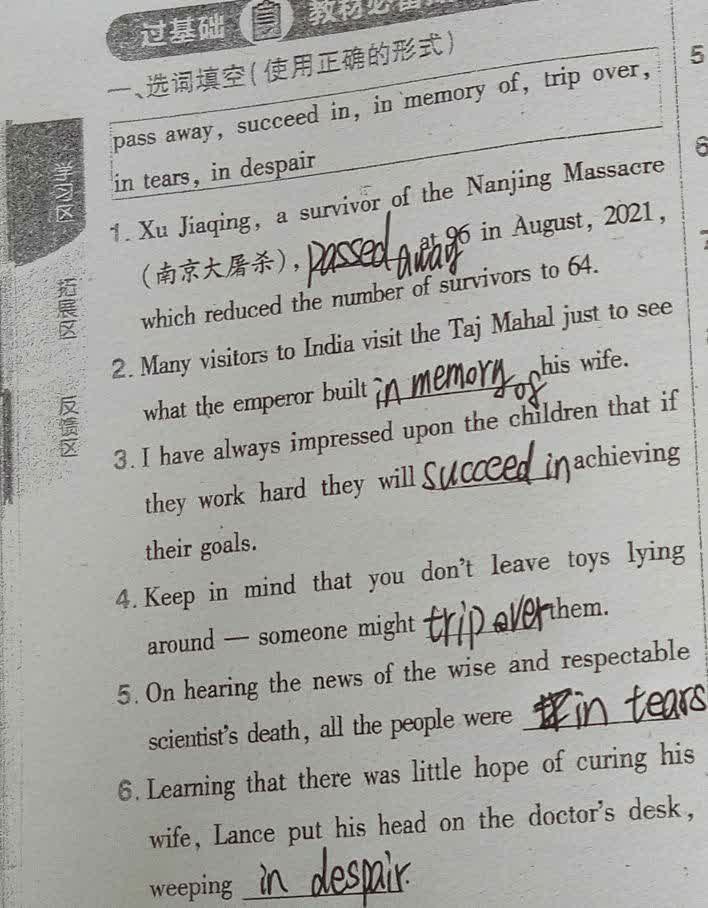 过基础
教材必备
一、选词填空(使用正确的形式)
pass away, succeed in, in memory of, trip over,
in tears, in despair
1. Xu Jiaqing, a survivor of the Nanjing Massacre
(南京大屠杀), passed away at 96 in August, 2021,
which reduced the number of survivors to 64.
2. Many visitors to India visit the Taj Mahal just to see
what the emperor built in memory of his wife.
3. I have always impressed upon the children that if
they work hard they will succeed in achieving
their goals.
4. Keep in mind that you don't leave toys lying
around — someone might trip over them.
5. On hearing the news of the wise and respectable
scientist's death, all the people were in tears
6. Learning that there was little hope of curing his
wife, Lance put his head on the doctor's desk,
weeping in despair.
学习区
拓展区
反馈区
5
6